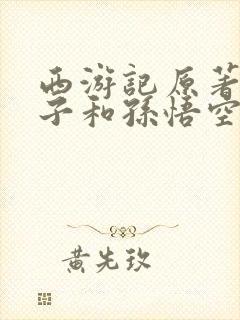 西游记原著
子和孫悟空
黄先玖